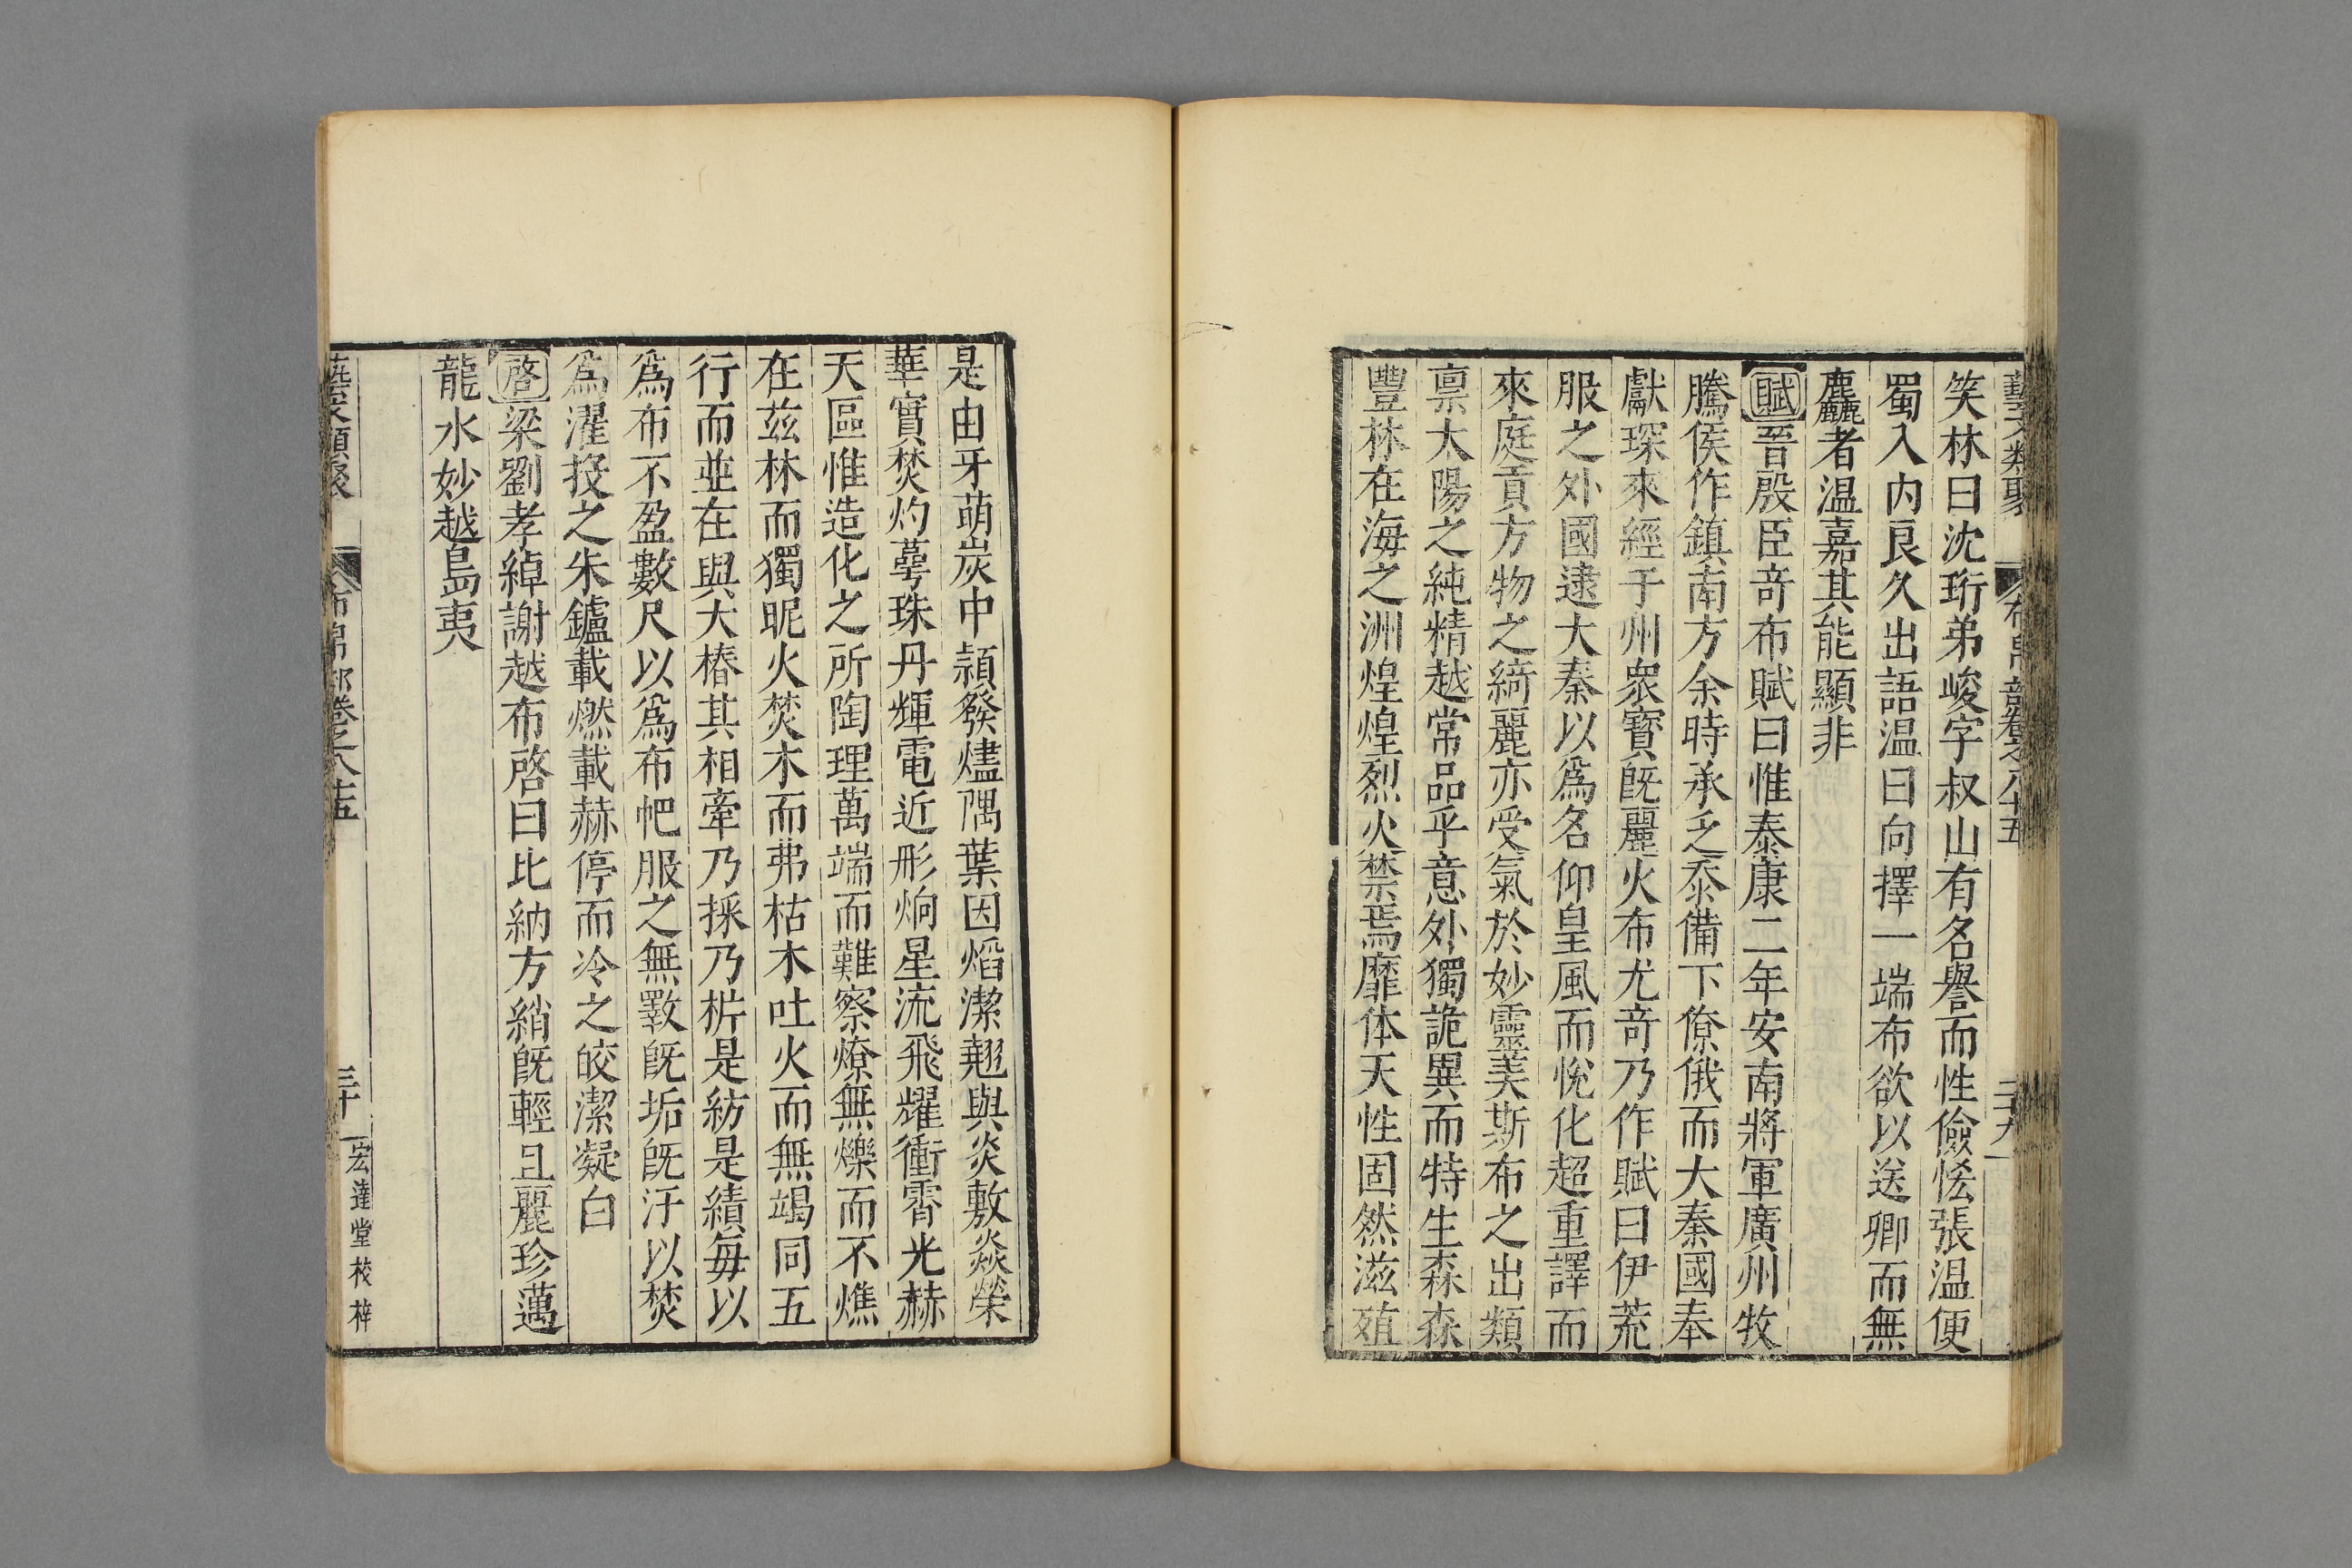 藝文類聚 布帛部卷之八十五 二十九
笑林曰沈珩弟峻字叔山有名譽而性儉恡張温便
蜀入内良久出語温曰向擇一端布欲以送卿而無
麤者温嘉其能顯非
賦晉殷臣竒布賦曰惟泰康二年安南將軍廣州牧
騰侯作鎮南方余時承乏忝備下僚俄而大秦國奉
獻琛來經于州衆寶旣麗火布尤竒乃作賦曰伊荒
服之外國逮大秦以爲名仰皇風而悅化超重譯而
來庭貢方物之綺麗亦受氣於妙靈美斯布之出類
禀太陽之純精越常品乎意外獨詭異而特生森森
豐林在海之洲煌煌烈火禁焉靡体天性固然滋殖
是由牙萌炭中頴發燼隅葉因焰潔翹與炎敷焱榮
華實焚灼蕚珠丹輝電近形炯星流飛耀衝霄光赫
天區惟造化之所陶理萬端而難察燎無爍而不燋
在茲林而獨昵火焚木而弗枯木吐火而無竭同五
行而並在與大椿其相牽乃採乃枿是紡是績每以
爲布不盈數尺以爲布帊服之無斁旣垢旣汙以焚
爲濯投之朱鑪載燃載赫停而冷之皎潔凝白
啓梁劉孝綽謝越布啓曰比納方綃旣輕且麗珍邁
龍水妙越島夷
藝文類聚 布帛部卷之八十五 三十 宏達堂校梓